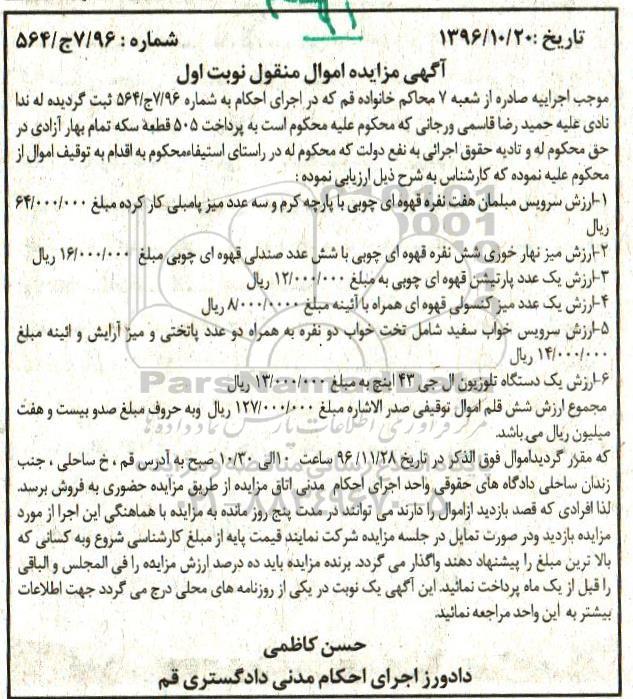 تاریخ :۱۳۹۶/۱۰/۲۰
شماره : ۷/۹۶ج/۵۶۴
آگهی مزایده اموال منقول نوبت اول
موجب اجراییه صادره از شعبه ۷ محاکم خانواده قم که در اجرای احکام به شماره ۷/۹۶ج/۵۶۴ ثبت گردیده له ندا
نادی علیه حمید رضا قاسمی ورجانی که محکوم علیه محکوم است به پرداخت ۵۰۵ قطعه سکه تمام بهار آزادی در
حق محکوم له و تادیه حقوق اجرائی به نفع دولت که محکوم له در راستای استیفاءمحکوم به اقدام به توقیف اموال از
محکوم علیه نموده که کارشناس به شرح ذیل ارزیابی نموده :
۱-ارزش سرویس مبلمان هفت نفره قهوه ای چوبی با پارچه کرم و سه عدد میز پامبلی کار کرده مبلغ ۶۴/۰۰۰/۰۰۰
ریال
۲-ارزش میز نهار خوری شش نفره قهوه ای چوبی با شش عدد صندلی قهوه ای چوبی مبلغ ۱۶/۰۰۰/۰۰۰ ریال
۳-ارزش یک عدد پارتیشن قهوه ای چوبی به مبلغ ۱۲/۰۰۰/۰۰۰ ریال
۴-ارزش یک عدد میز کنسولی قهوه ای همراه با آئینه مبلغ ۸/۰۰۰/۰۰۰۰ ریال
۵-ارزش سرویس خواب سفید شامل تخت خواب دو نفره به همراه دو عدد پاتختی و میز آرایش و ائینه مبلغ
۱۴/۰۰۰/۰۰۰ ریال
۶-ارزش یک دستگاه تلوزیون ال جی ۴۳ اینچ به مبلغ ۱۳/۰۰۰/۰۰۰ ریال
مجموع ارزش شش قلم اموال توقیفی صدر الاشاره مبلغ ۱۲۷/۰۰۰/۰۰۰ ریال وبه حروف مبلغ صدو بیست و هفت
میلیون ریال می باشد.
که مقرر گردیداموال فوق الذکر در تاریخ ۹۶/۱۱/۲۸ ساعت ۱۰الی ۱۰/۳۰ صبح به آدرس قم ، خ ساحلی ، جنب
زندان ساحلی دادگاه های حقوقی واحد اجرای احکام مدنی اتاق مزایده از طریق مزایده حضوری به فروش برسد.
لذا افرادی که قصد بازدید ازاموال را دارند می توانند در مدت پنج روز مانده به مزایده با هماهنگی این اجرا از مورد
مزایده بازدید ودر صورت تمایل در جلسه مزایده شرکت نمایند قیمت پایه از مبلغ کارشناسی شروع وبه کسانی که
بالا ترین مبلغ را پیشنهاد دهند واگذار می گردد. برنده مزایده باید ده درصد ارزش مزایده را فی المجلس و الباقی
را قبل از یک ماه پرداخت نمائید. این آگهی یک نوبت در یکی از روزنامه های محلی درج می گردد جهت اطلاعات
بیشتر به این واحد مراجعه نمائید.
حسن کاظمی
دادورز اجرای احکام مدنی دادگستری قم
ParsNamadData